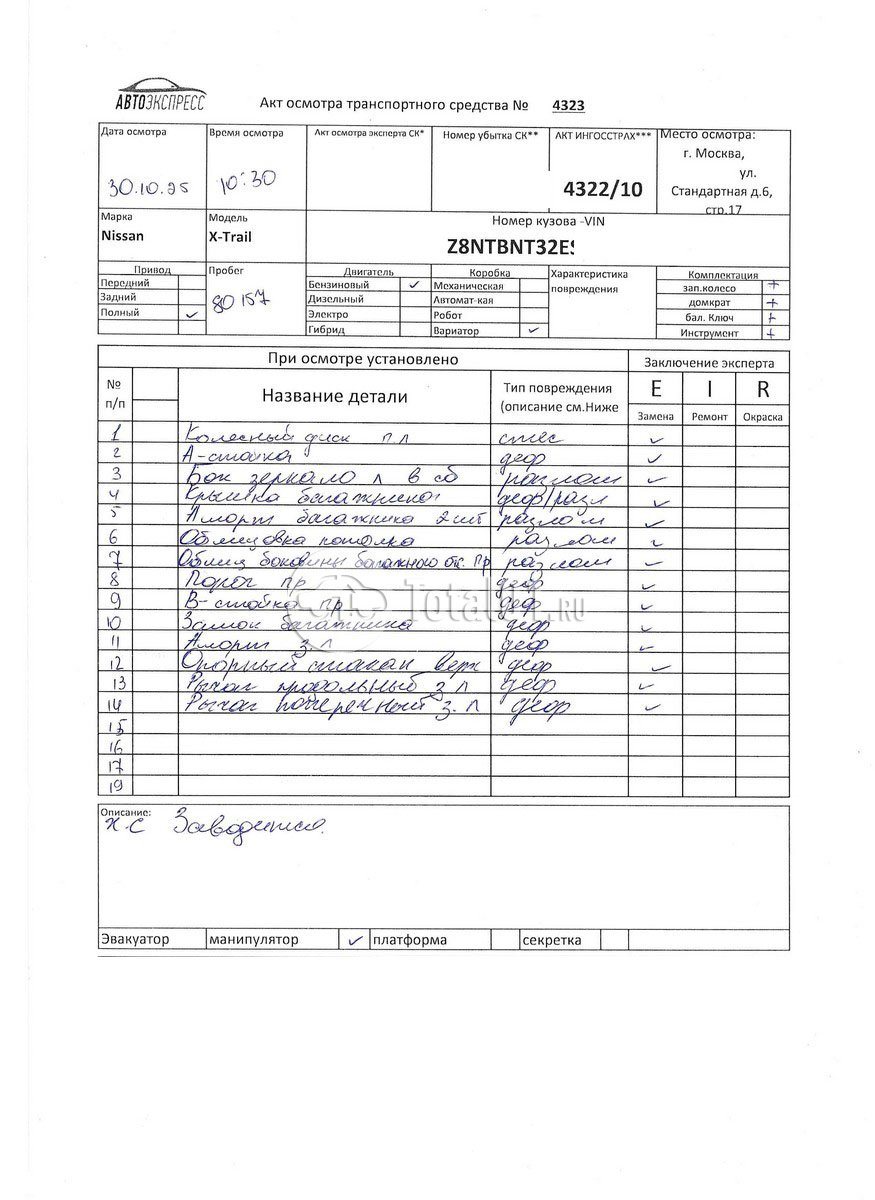 АВТОЭКСПРЕСС
Акт осмотра транспортного средства № 4323
Дата осмотра Время осмотра Акт осмотра эксперта СК* Номер убытка СК** АКТ ИНГОССТРАХ*** Место осмотра:
г. Москва,
ул.
30.10.25 10:30 4322/10 Стандартная д.6,
стр.17
Марка Модель Номер кузова -VIN
Nissan X-Trail Z8NTBNT32E
Привод Пробег Двигатель Коробка Характеристика Комплектация
Передний Бензиновый ✓ Механическая повреждения зап.колесо +
Задний 80157 Дизельный Автомат-кая домкрат +
Полный ✓ Электро Робот бал. Ключ +
Гибрид Вариатор ✓ Инструмент +
При осмотре установлено Заключение эксперта
№ п/п Название детали Тип повреждения (описание см.Ниже E I R
Замена Ремонт Окраска
1 Колесный диск п л стес ✓
2 А-стойка деф ✓
3 Бок зеркало л в сб разлом ✓
4 Крышка багажника деф/разл ✓
5 Аморт багажника 2 шт разлом ✓
6 Облицовка потолка разлом ✓
7 Облиц боковины багажного отс. Пр разлом ✓
8 Порог пр деф ✓
9 В-стойка пр деф ✓
10 Замок багажника деф ✓
11 Аморт з.л деф ✓
12 Опорный стакан верх деф ✓
13 Рычаг продольный з л деф ✓
14 Рычаг поперечный з.л деф ✓
15
16
17
19
TotalOT.RU
Описание:
Х-С Заводится.
Эвакуатор манипулятор ✓ платформа секретка